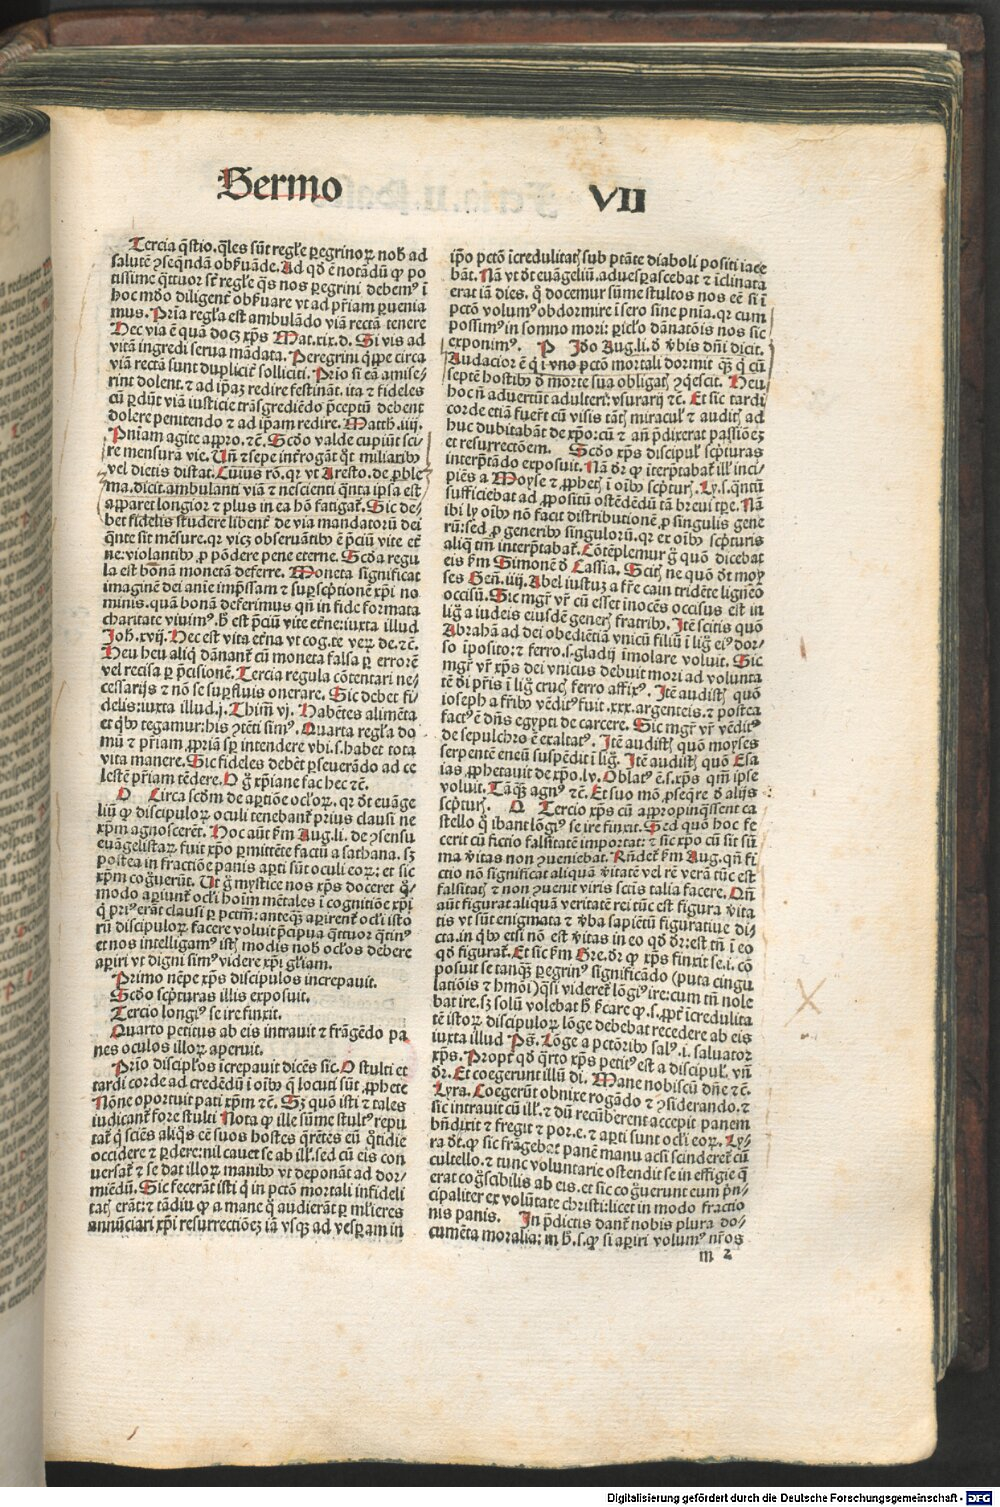 Sermo VII
Tercia q̄stio. q̄les sūt regl̄e ꝑegrinoꝝ nob̄ ad
salutē ꝯseq̄ndā obs̄uāde. Ad qđ ē notādū ꝙ po
tissime q̄ttuor st̄ regl̄e q̄s nos ꝑegrini debemꝰ ī
hoc mōdo diligent̄ obs̄uare vt ad pr̄iam ꝑuenia
mus. Pria regl̄a est ambulādo viā rectā tenere
Hec via ē quā docꝫ xp̄s Mat.xix.d. Si vis ad
vitā ingredi serua mādata. Peregrini q̄ꝑe circa
viā rectā sunt duplicit̄ solliciti. Prio si eā amise-
rint dolent. ⁊ ad ip̄aꝫ redire festināt. ita ⁊ fideles
cū ꝑdūt viā iusticie trāsgrediēdo p̄ceptū debent
dolere penitendo ⁊ ad ip̄am redire. Matth.iiij.
Pniam agite aꝓpro. ⁊c̄. Scd̄o valde cupiūt sci-
re mensurā vie. Uñ ⁊ sepe int̄rogāt q̄t miliaribꝰ
vel dietis distat. Cuiꝰ rō. qꝛ vt Aresto. de ꝓble
ma. dicit. ambulanti viā ⁊ nescienti q̄nta ipsa est
apparet longior ⁊ plus in ea hō fatigat̄. Sic de-
bet fidelis studere libent̄ de via mandatorū dei
q̄nte sit mēsure. qꝛ vicꝫ obseruātibꝰ ē p̄ciū vite et̄
ne: violantibꝰ ꝓ pōdere pene eterne. Scd̄a regu
la est bonā monetā deferre. Moneta significat
imaginē dei aīe imp̄ssam ⁊ suꝑscriptionē xp̄i no
minis. quā bonā deferimus qn̄ in fide formata
charitate viuimꝰ. h̄ est p̄ciū vite et̄ne: iuxta illud
Joh̄. xvij. Hec est vita et̄na vt cog. te veꝝ de. ⁊c̄.
Heu heu aliq̄ dānant̄ cū moneta falsa ꝑ errorē
vel recisa ꝑ p̄cisionē. Tercia regula cōtentari ne-
cessarijs ⁊ nō se suꝑfluis onerare. Sic debet fi-
delis: iuxta illud. j. Thim̄ vj. Habētes alimēta
et q̄bꝰ tegamur: his ꝯtēti simꝰ. Quarta regl̄a do
mū ⁊ pr̄iam ꝓpriā sꝑ intendere vbi. s. habet tota
vita manere. Sic fideles debēt ꝑseuerādo ad ce
lestē pr̄iam tēdere. O ḡ xp̄iane fac hec ⁊c̄.
O Circa scd̄m de aꝑtiōe ocl̄oꝝ. qꝛ dt̄ euāge
liū ꝙ discipuloꝝ oculi tenebant̄ prius clausi ne
xp̄m agnoscerēt. Hoc aūt s̄m Aug. li. de ꝯsensu
euāgelistaꝝ fuit xp̄o ꝑmittēte factū a sathana. sꝫ
postea in fractiōe panis aꝑti sūt oculi eoꝝ: et sic
xp̄m cog̈uerūt. Ut ḡ mystice nos xp̄s doceret q̄-
modo aꝑiunt̄ ocl̄i hoīm mētales ī cognitiōe xp̄i
q̄ priꝰ erāt clausi ꝑ pctm̄: anteq̄ꝫ aꝑirent̄ ocl̄i isto
rū discipuloꝝ facere voluit p̄cipua q̄ttuor q̄tinꝰ
et nos intelligamꝰ istꝭ modis nob̄ ocl̄os debere
aꝑiri vt digni simꝰ videre xp̄i gl̄iam.
Primo nēpe xp̄s discipulos increpauit.
Scd̄o sc̄pturas illis exposuit.
Tercio longiꝰ se ire finxit.
Quarto petitus ab eis intrauit ⁊ frāgēdo pa
nes oculos illoꝝ aperuit.
Prio discipl̄os īcrepauit dicēs sic. O stulti et
tardi corde ad credēdū ī oībꝰ q̄ locuti sūt ꝓphete
Nōne oportuit pati xp̄m ⁊c̄. Sꝫ quō isti ⁊ tales
iudicant̄ fore stulti Nota ꝙ ille sūme stultꝰ repu
tat̄ q̄ sciēs aliq̄s eē suos hostes q̄rētes eū q̄tidie
occidere ⁊ ꝑdere: nil cauet se ab ill̄. sed cū eis con
uersat̄ ⁊ se dat illoꝝ manibꝰ vt deponāt ad dor-
miēdū. Sic fecerāt isti q̄ in pctō mortali infideli
tatꝭ erāt: ⁊ tādiu ꝙ a mane q̄ audierāt ꝑ ml̄ieres
annūciari xp̄i resurrectiōeꝫ iā vsqꝫ ad vesꝑam in
ip̄o pctō īcredulitatꝭ sub ptāte diaboli positi iace
bāt. Nā vt dt̄ euāgeliū. aduesꝑascebat ⁊ īclinata
erat iā dies. q̄ docemur sūme stultos nos eē si ī
pctō volumꝰ obdormire ī sero sine pnīa. qꝛ cum
possimꝰ in somno mori: ꝑicl̄o dānatōis nos sic
exponimꝰ. P Jdo Aug. li. đ v̄bis dn̄i dicit.
Audacior ē q̄ ī vno pctō mortali dormit qꝫ q̄ cū
septē hostibꝰ đ morte sua obligatꝭ ꝯq̄escit. Heu
hoc n̄ aduertūt adulteri: vsurarij ⁊c̄. Et sic tardi
corde etiā fuer̄t cū visis tātꝭ miracul̄ ⁊ auditꝭ ad
huc dubitabāt de xp̄o: cū ⁊ añ p̄dixerat passiōeꝫ
et resurrectōem. Scd̄o xp̄s discipul̄ sc̄pturas
interp̄tādo exposuit. Nā dr̄ ꝙ īterp̄tabat̄ ill̄ inci-
piēs a Moyse ⁊ ꝓphetꝭ ī oībꝰ sc̄pturꝭ. Ly. s. q̄ntū
sufficiebat ad ꝓpositū ostēdēdū tā breui tp̄e. Nā
ibi ly oībꝰ nō facit distributionē ꝓ singulis gene
rū: sed ꝓ generibꝰ singuloꝝ. qꝛ ex oībꝰ sc̄pturis
aliq̄ tm̄ interp̄tabat̄. Cōtēplemur ḡ quō dicebat
eis s̄m Simonē đ Cassia. Scitꝭ ne quō dt̄ moy
ses Gen̄. iiij. Abel iustuꝫ a fr̄e cain tridēte ligneo
occisū. Sic mgr̄ vr̄ cū esset inocēs occisus est in
lig̈ a iudeis eiusdē generꝭ fratribꝰ. Jtē scitis quō
Abrahā ad dei obediētiā vnicū filiū ī lig̈ eiꝰ dor-
so īposito: ⁊ ferro. s. gladij īmolare voluit. Sic
mgr̄ vr̄ xp̄s dei vnicus debuit mori ad volunta
tē di pr̄is ī lig̈ crucꝭ ferro affixꝰ. Jtē audistꝭ quō
ioseph a fr̄ibꝰ vēditꝰ fuit .xxx. argenteis. ⁊ postea
factꝰ ē dn̄s egypti de carcere. Sic mgr̄ vr̄ vēditꝰ
de sepulchro ē exaltatꝰ. Jtē audistꝭ quō moyses
serpentē eneū suspēdit ī lig̈. Jtē audistꝭ quō Esa
ias ꝓphetauit de xp̄o. lv. Oblatꝰ ē. s. xp̄s qm̄ ipse
voluit. Tāqꝫ agnꝰ ⁊c̄. Et suo mō ꝓseq̄re đ alijs
sc̄pturꝭ. Q Tercio xp̄s cū appropinq̄ssent ca
stello q̄ ibant lōgiꝰ se ire finxit. Sed quō hoc fe
cerit cū fictio falsitatē importat: ⁊ sic xp̄o cū sit sūm
ma v̄itas non ꝯueniebat. Rn̄det̄ s̄m Aug. qn̄ fi
ctio nō significat aliquā v̄itatē vel rē verā tūc est
falsitatꝭ ⁊ non ꝯuenit viris sctīs talia facere. Qn̄
aūt figurat aliquā veritatē rei tūc est figura v̄ita
tis vt sūt enigmata ⁊ v̄ba sapiētū figuratiue di-
cta. in q̄bꝰ etsi nō est v̄itas in eo qđ dr̄: est tn̄ ī eo
qđ figurat̄. Et sic s̄m Gre. dr̄ ꝙ xp̄s finxit se. i. cō
posuit se tanqꝫ ꝑegrinꝰ significādo (puta cingu
latiōis ⁊ hmōi) q̄si videret̄ lōgiꝰ ire: cum tn̄ nole
bat ire. sꝫ solū volebat h̄ s̄care ꝙ. s. ꝓpt̄ īcredulita
tē istoꝝ discipuloꝝ lōge debebat recedere ab eis
iuxta illud Ps̄. Lōge a pctōribꝰ salꝰ. i. saluator
xp̄s. Propt̄ qđ q̄rto xp̄s petitꝰ est a discipul̄. vn̄
dr̄. Et coegerunt illū di. Mane nobiscū dn̄e ⁊c̄.
Lyra. Coegerūt obnixe rogādo ⁊ ꝯsiderando. ⁊
sic intrauit cū ill̄. ⁊ dū recūberent accepit panem
bn̄dixit ⁊ fregit ⁊ por. e. ⁊ aꝑti sunt ocl̄i eoꝝ. Ly-
ra dt̄. ꝙ sic frāgebat panē manu acsi scinderet̄ cū
cultello. ⁊ tunc voluntarie ostendit se in effigie q̄
erat cog̈scibilis ab eis. et sic cog̈uerunt eum p̄n-
cipaliter ex volūtate christi: licet in modo fractio
nis panis. Jn p̄dictis dant̄ nobis plura do-
cumēta moralia: in h̄. s. ꝙ si aꝑiri volumꝰ nr̄os
m 2
Digitalisierung gefördert durch die Deutsche Forschungsgemeinschaft - DFG